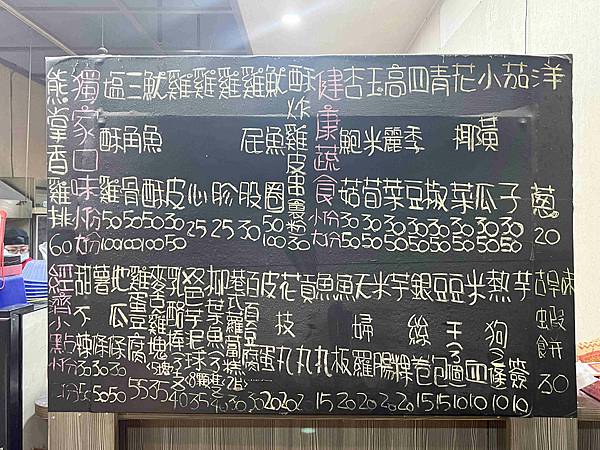 熊掌香雞排 60
獨家口味 小份 大份
鹽酥雞 50 100
三角骨 50 100
魷魚酥 50 100
雞皮 30 50
雞心 25
雞胗 25
雞屁股 30
魷魚圈 50 100
酥炸雞皮串 30
健康蔬食 小份 大份
杏鮑菇 30 50
玉米筍 30 50
高麗菜 30 50
四季豆 30 50
青椒 30 50
花椰菜 30 50
小黃瓜 30 50
茄子 30 50
洋蔥 20
經濟小點 小份
甜不辣 30 50
薯條 30 50
地瓜條 30 50
雞蛋豆腐
麥克雞塊
百頁豆腐
皮蛋
花枝丸
貢丸
魚丸
魚板
天婦羅
米腸
芋粿
銀絲卷
豆包
豆干
米血
熱狗
芋簽
胡椒蝦餅 30